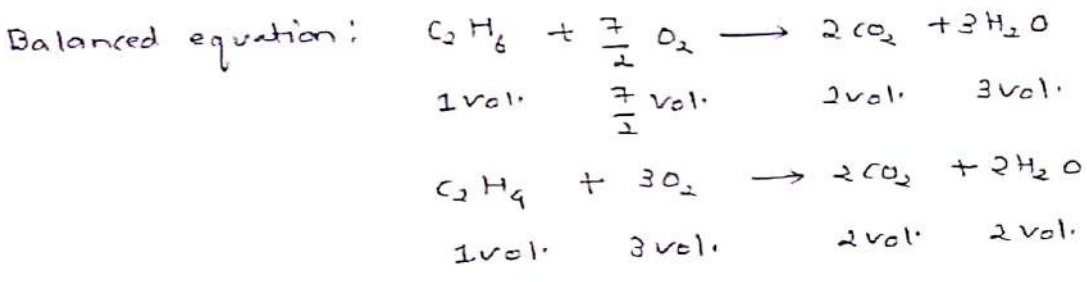 Balanced equation: C₂H₆ + 7/2 O₂ ⟶ 2CO₂ + 3H₂O
1 vol. 7/2 vol. 2 vol. 3 vol.
C₂H₄ + 3O₂ ⟶ 2CO₂ + 2H₂O
1 vol. 3 vol. 2 vol. 2 vol.